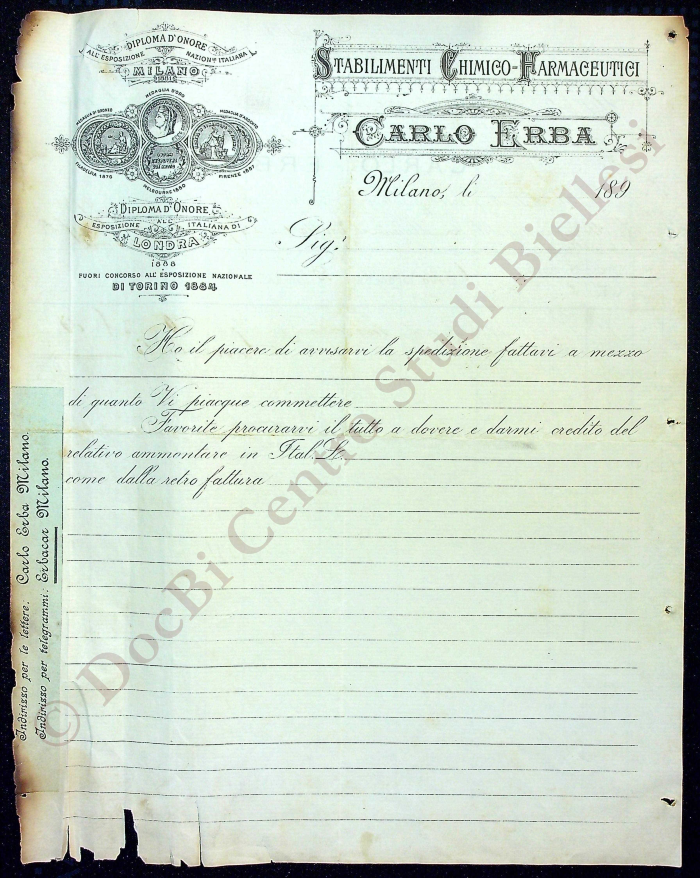 DIPLOMA D'ONORE
ALL'ESPOSIZIONE NAZION.LE ITALIANA
MILANO
1881
MEDAGLIA D'ORO
MEDAGLIA DI BRONZO
MEDAGLIA D'ARGENTO
FILADELFIA 1876
MELBOURNE 1880
FIRENZE 1861
DIPLOMA D'ONORE
ALL'
ESPOSIZIONE ITALIANA DI
LONDRA
1888
FUORI CONCORSO ALL'ESPOSIZIONE NAZIONALE
DI TORINO 1884
STABILIMENTI CHIMICO-FARMACEUTICI
CARLO ERBA
Milano, li 189
Sig.
Ho il piacere di avvisarvi la spedizione fattavi a mezzo
di quanto Vi piacque commettere
Favorite procurarvi il tutto a dovere e darmi credito del
relativo ammontare in Ital. L.
come dalla retro fattura
Indirizzo per le lettere: Carlo Erba Milano.
Indirizzo per telegrammi: Erbacar Milano.
© DocBi Centro Studi Biellesi